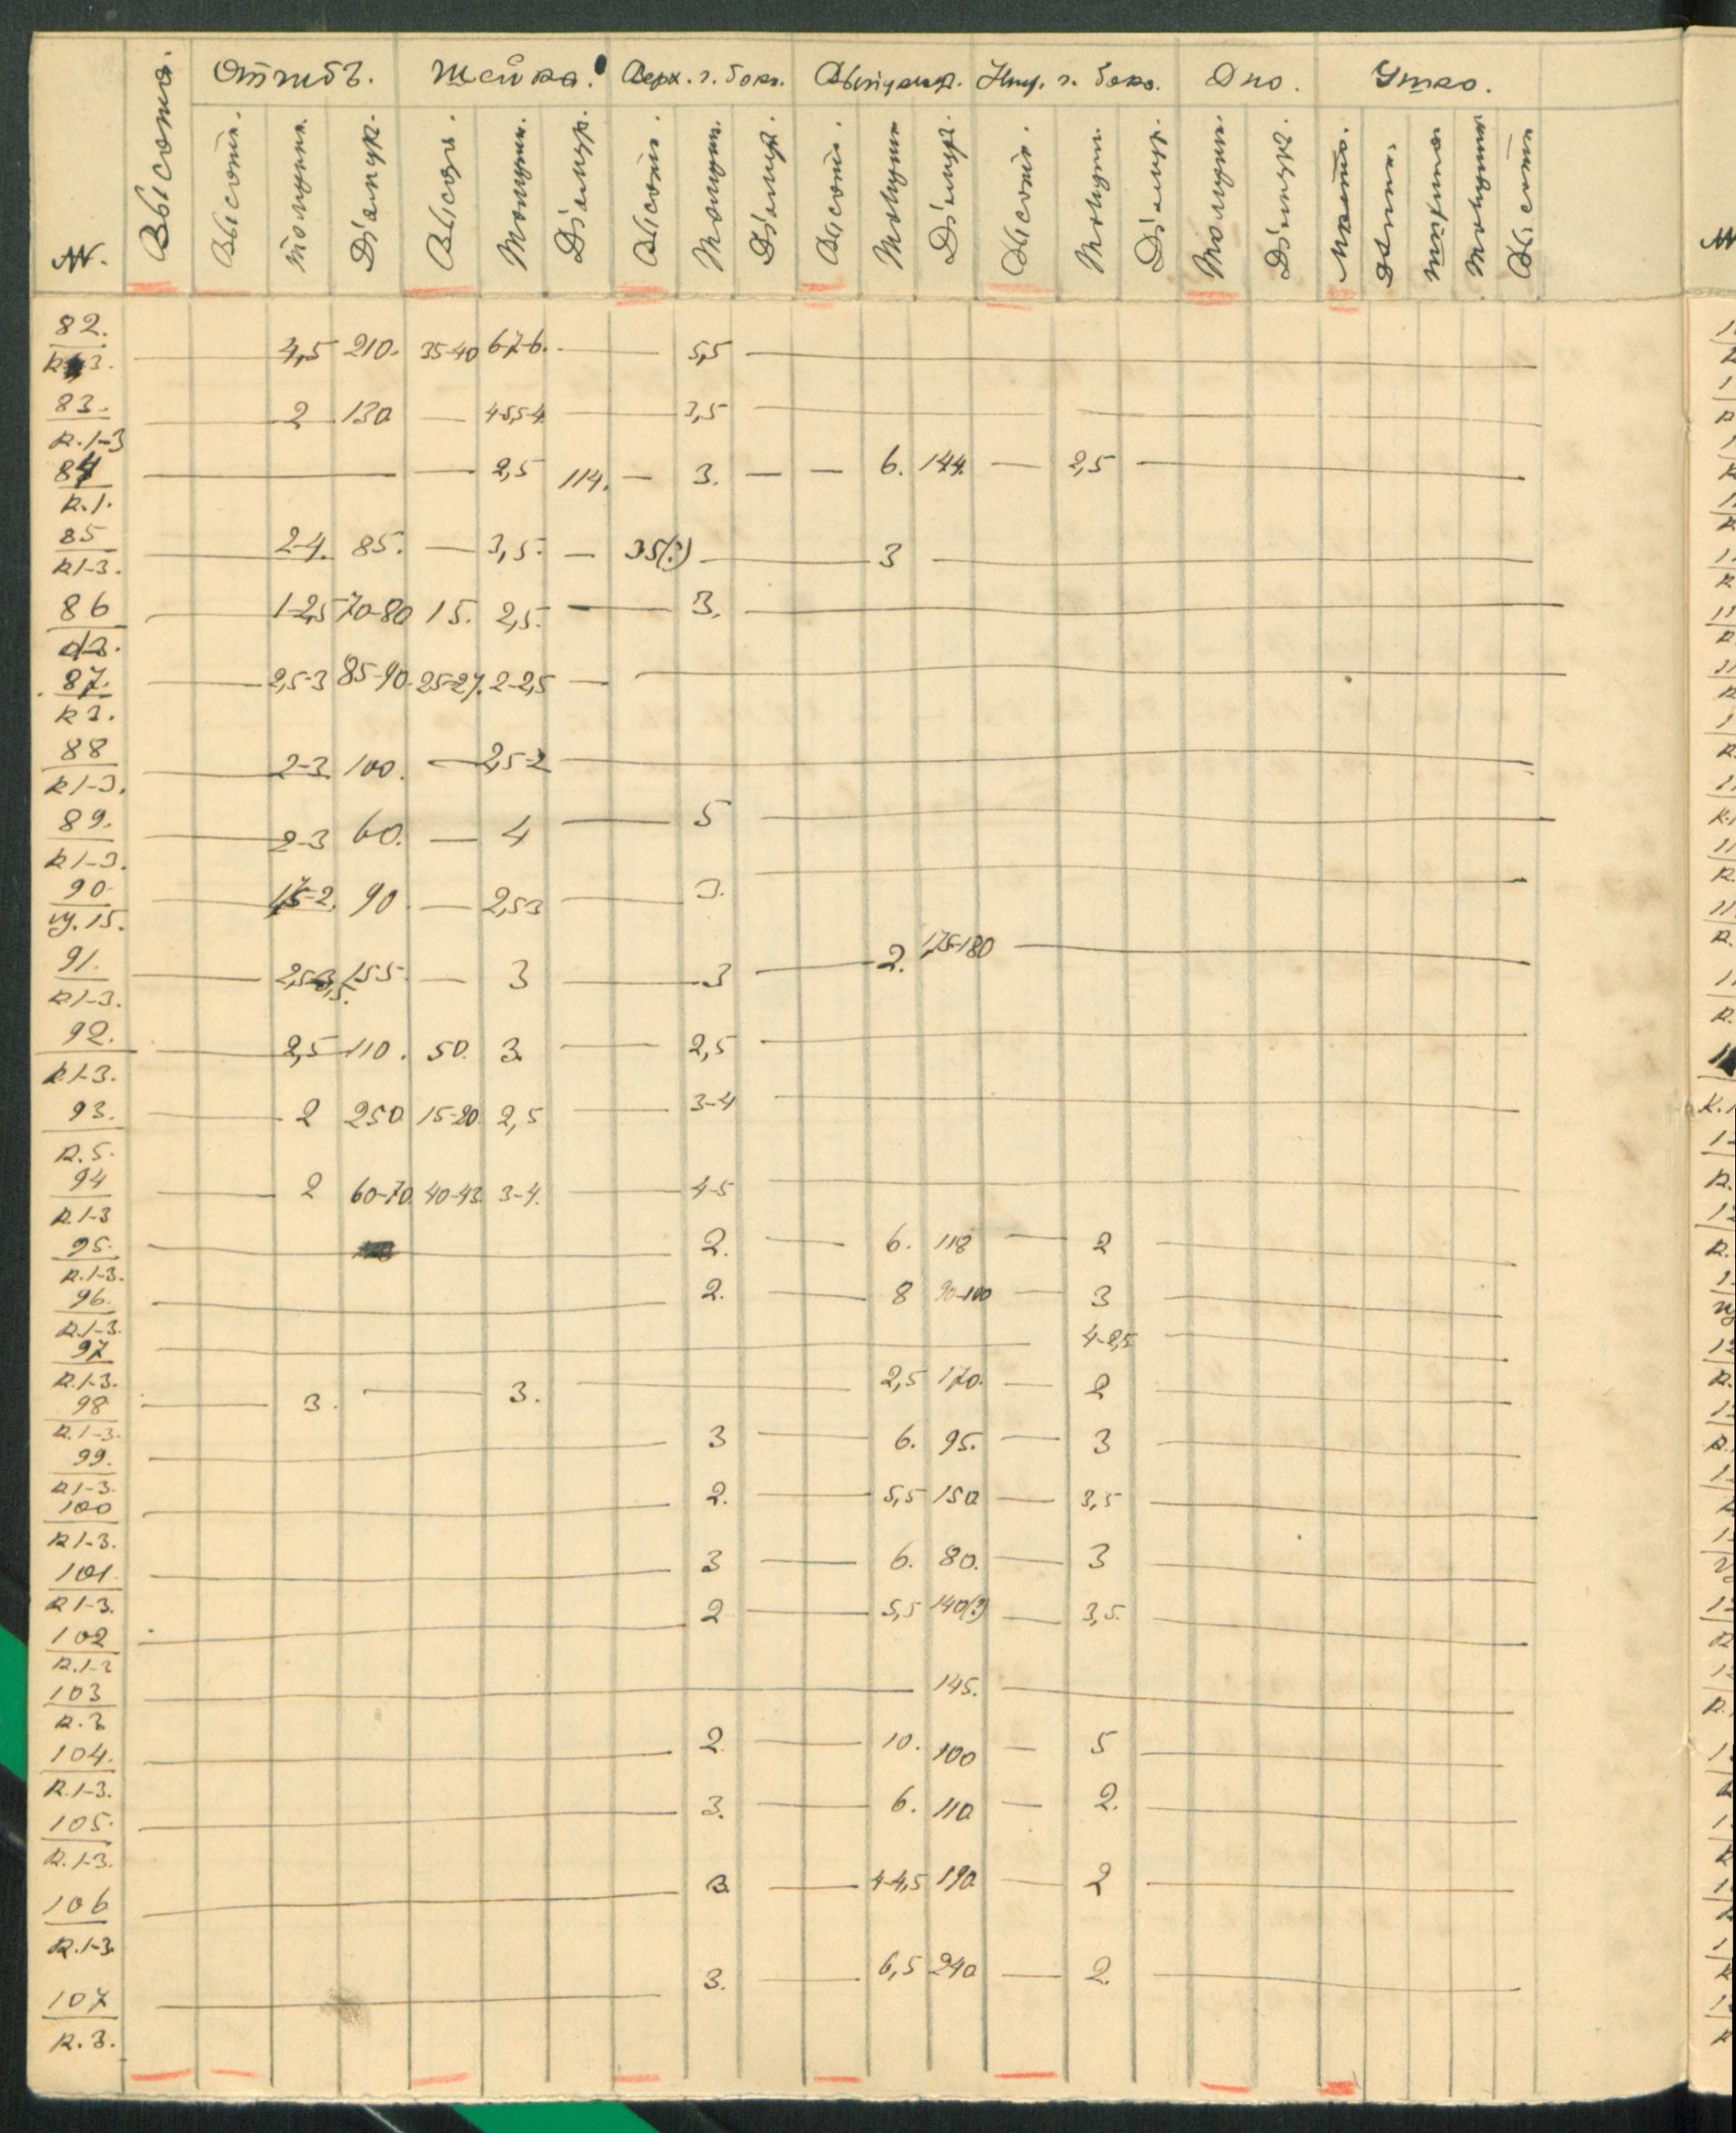 №№. Высота. Отгибъ. Шейка. Верх. ч. бока. Выпукл. Ниж. ч. бока. Дно. Ушко.
Высота. Толщин. Діаметр. Высота. Толщин. Діаметр. Высота. Толщин. Діаметр. Высота. Толщин. Діаметр. Высота. Толщин. Діаметр. Толщин. Діаметр. Длина. Ширина Толщина Высота
82. — 4,5 210. 35-40 6-7-6. — 5,5 —
83. к.1-3 — 2 130 — 4-5,5-4 — 3,5 —
84 к.1. — — 2,5 114. — 3. — — 6. 144. — 2,5 —
85 к1-3. — 2-4. 85. — 3,5. — 35(?) — 3 —
86 — 1-2,5 70-80 15. 2,5. — 3. —
87. к3. — 2,5-3 85-90. 25-27. 2-2,5 — —
88 к1-3. — 2-3. 100. — 2,5-2 —
89. к1-3. — 2-3 60. — 4 — 5 —
90. 15. — 1,5-2. 90. — 2,5-3 — 3. —
91. к1-3. — 155. — 3 — 3 — 2. 175-180 —
92. к1-3. — 2,5 110. 50. 3. — 2,5 —
93. к.5. — 2 250. 15-20. 2,5 — 3-4 —
94 к.1-3 — 2 60-70. 40-43. 3-4. — 4-5 —
95. к.1-3. — 2. — 6. 118 — 2 —
96. к.1-3. — 2. — 8 90-100 — 3 —
97 к.1-3. — 4-2,5 —
98 к.1-3. — 3. — 3. — 2,5 170. — 2 —
99. к1-3. — 3 — 6. 95. — 3 —
100 к1-3. — 2. — 5,5 150. — 3,5 —
101. к1-3. — 3 — 6. 80. — 3 —
102 к.1-3 — 2 — 5,5 140(?) — 3,5. —
103 к.3 — 145. —
104. к.1-3. — 2. — 10. 100 — 5 —
105. к.1-3. — 3. — 6. 110. — 2. —
106 к.1-3 — 3. — 4-4,5 190. — 2 —
107 к.3. — 3. — 6,5 240. — 2. —